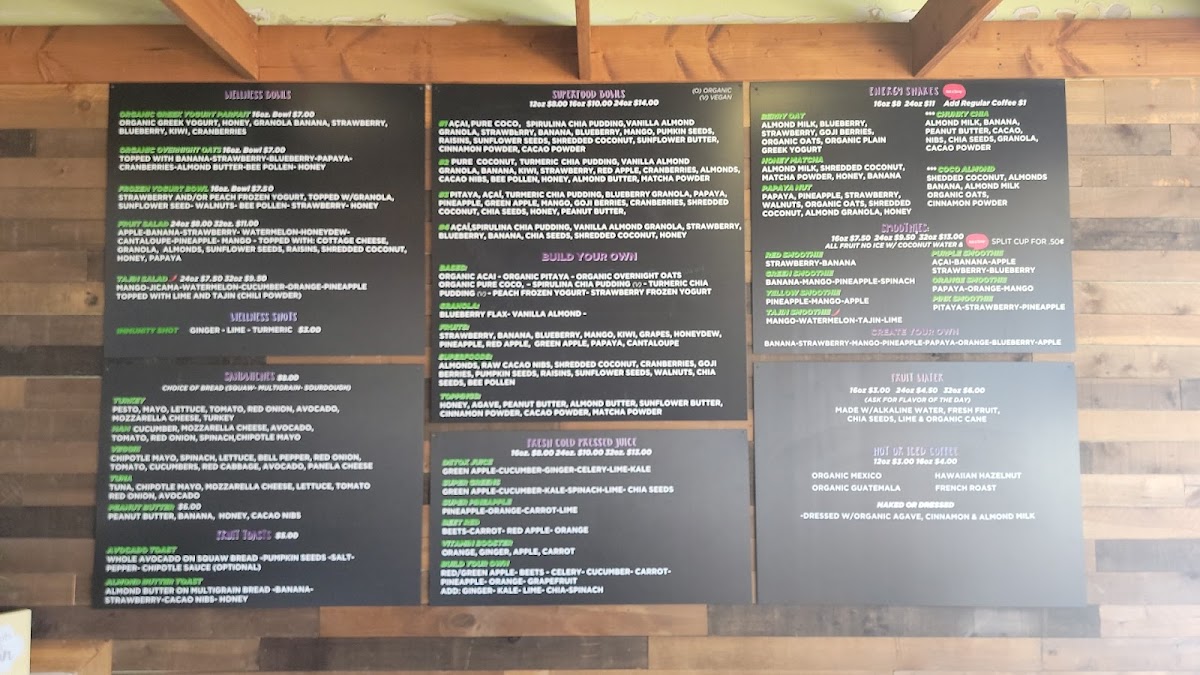 WELLNESS BOWLS
ORGANIC GREEK YOGURT PARFAIT 16oz. Bowl $7.00
ORGANIC GREEK YOGURT, HONEY, GRANOLA BANANA, STRAWBERRY,
BLUEBERRY, KIWI, CRANBERRIES
ORGANIC OVERNIGHT OATS 16oz. Bowl $7.00
TOPPED WITH BANANA-STRAWBERRY-BLUEBERRY-PAPAYA-
CRANBERRIES-ALMOND BUTTER-BEE POLLEN- HONEY
FROZEN YOGURT BOWL 16oz. Bowl $7.50
STRAWBERRY AND/OR PEACH FROZEN YOGURT, TOPPED W/GRANOLA,
SUNFLOWER SEED- WALNUTS- BEE POLLEN- STRAWBERRY- HONEY
FRUIT SALAD 24oz $9.00 32oz. $11.00
APPLE-BANANA-STRAWBERRY- WATERMELON-HONEYDEW-
CANTALOUPE-PINEAPPLE- MANGO - TOPPED WITH: COTTAGE CHEESE,
GRANOLA, ALMONDS, SUNFLOWER SEEDS, RAISINS, SHREDDED COCONUT,
HONEY, PAPAYA
TAJIN SALAD 24oz $7.50 32oz $9.50
MANGO-JICAMA-WATERMELON-CUCUMBER-ORANGE-PINEAPPLE
TOPPED WITH LIME AND TAJIN (CHILI POWDER)
WELLNESS SHOTS
IMMUNITY SHOT GINGER - LIME - TURMERIC $3.00
SANDWICHES $8.00
CHOICE OF BREAD (SQUAW- MULTIGRAIN- SOURDOUGH)
TURKEY
PESTO, MAYO, LETTUCE, TOMATO, RED ONION, AVOCADO,
MOZZARELLA CHEESE, TURKEY
HAM CUCUMBER, MOZZARELLA CHEESE, AVOCADO,
TOMATO, RED ONION, SPINACH,CHIPOTLE MAYO
VEGGIE
CHIPOTLE MAYO, SPINACH, LETTUCE, BELL PEPPER, RED ONION,
TOMATO, CUCUMBERS, RED CABBAGE, AVOCADO, PANELA CHEESE
TUNA
TUNA, CHIPOTLE MAYO, MOZZARELLA CHEESE, LETTUCE, TOMATO
RED ONION, AVOCADO
PEANUT BUTTER $6.00
PEANUT BUTTER, BANANA, HONEY, CACAO NIBS
FRUIT TOASTS $5.00
AVOCADO TOAST
WHOLE AVOCADO ON SQUAW BREAD -PUMPKIN SEEDS -SALT-
PEPPER- CHIPOTLE SAUCE (OPTIONAL)
ALMOND BUTTER TOAST
ALMOND BUTTER ON MULTIGRAIN BREAD -BANANA-
STRAWBERRY-CACAO NIBS- HONEY
SUPERFOOD BOWLS
(O) ORGANIC
(V) VEGAN
12oz $8.00 16oz $10.00 24oz $14.00
#1 AÇAI, PURE COCO, SPIRULINA CHIA PUDDING, VANILLA ALMOND
GRANOLA, STRAWBLRRY, BANANA, BLUEBERRY, MANGO, PUMKIN SEEDS,
RAISINS, SUNFLOWER SEEDS, SHREDDED COCONUT, SUNFLOWER BUTTER,
CINNAMON POWDER, CACAO POWDER
#2 PURE COCONUT, TURMERIC CHIA PUDDING, VANILLA ALMOND
GRANOLA, BANANA, KIWI, STRAWBERRY, RED APPLE, CRANBERRIES, ALMONDS,
CACAO NIBS, BEE POLLEN, HONEY, ALMOND BUTTER, MATCHA POWDER
#3 PITAYA, AÇAÍ, TURMERIC CHIA PUDDING, BLUEBERRY GRANOLA, PAPAYA,
PINEAPPLE, GREEN APPLE, MANGO, GOJI BERRIES, CRANBERRIES, SHREDDED
COCONUT, CHIA SEEDS, HONEY, PEANUT BUTTER,
#4 AÇAÍ,SPIRULINA CHIA PUDDING, VANILLA ALMOND GRANOLA, STRAWBERRY,
BLUEBERRY, BANANA, CHIA SEEDS, SHREDDED COCONUT, HONEY
BUILD YOUR OWN
BASES:
ORGANIC ACAI - ORGANIC PITAYA - ORGANIC OVERNIGHT OATS
ORGANIC PURE COCO, - SPIRULINA CHIA PUDDING (V) - TURMERIC CHIA
PUDDING (V) - PEACH FROZEN YOGURT- STRAWBERRY FROZEN YOGURT
GRANOLA:
BLUEBERRY FLAX- VANILLA ALMOND -
FRUITS:
STRAWBERRY, BANANA, BLUEBERRY, MANGO, KIWI, GRAPES, HONEYDEW,
PINEAPPLE, RED APPLE, GREEN APPLE, PAPAYA, CANTALOUPE
SUPERFOODS:
ALMONDS, RAW CACAO NIBS, SHREDDED COCONUT, CRANBERRIES, GOJI
BERRIES, PUMPKIN SEEDS, RAISINS, SUNFLOWER SEEDS, WALNUTS, CHIA
SEEDS, BEE POLLEN
TOPPINGS:
HONEY, AGAVE, PEANUT BUTTER, ALMOND BUTTER, SUNFLOWER BUTTER,
CINNAMON POWDER, CACAO POWDER, MATCHA POWDER
FRESH COLD PRESSED JUICE
16oz. $8.00 24oz. $10.00 32oz. $13.00
DETOX JUICE
GREEN APPLE-CUCUMBER-GINGER-CELERY-LIME-KALE
SUPER GREENS
GREEN APPLE-CUCUMBER-KALE-SPINACH-LIME- CHIA SEEDS
SUPER PINEAPPLE
PINEAPPLE-ORANGE-CARROT-LIME
BEET RED
BEETS-CARROT- RED APPLE- ORANGE
VITAMIN BOOSTER
ORANGE, GINGER, APPLE, CARROT
BUILD YOUR OWN
RED/GREEN APPLE- BEETS - CELERY- CUCUMBER- CARROT-
PINEAPPLE- ORANGE- GRAPEFRUIT
ADD: GINGER- KALE- LIME- CHIA-SPINACH
ENERGY SHAKES
16oz $8 24oz $11 Add Regular Coffee $1
BERRY OAT
ALMOND MILK, BLUEBERRY,
STRAWBERRY, GOJI BERRIES,
ORGANIC OATS, ORGANIC PLAIN
GREEK YOGURT
HONEY MATCHA
ALMOND MILK, SHREDDED COCONUT,
MATCHA POWDER, HONEY, BANANA
PAPAYA NUT
PAPAYA, PINEAPPLE, STRAWBERRY,
WALNUTS, ORGANIC OATS, SHREDDED
COCONUT, ALMOND GRANOLA, HONEY
*** CHUNKY CHIA
ALMOND MILK, BANANA,
PEANUT BUTTER, CACAO,
NIBS, CHIA SEEDS, GRANOLA,
CACAO POWDER
*** COCO ALMOND
SHREDDED COCONUT, ALMONDS
BANANA, ALMOND MILK
ORGANIC OATS,
CINNAMON POWDER
SMOOTHIES:
16oz $7.50 24oz $9.50 32oz $13.00
ALL FRUIT NO ICE W/ COCONUT WATER & SPLIT CUP FOR .50¢
RED SMOOTHIE
STRAWBERRY-BANANA
GREEN SMOOTHIE
BANANA-MANGO-PINEAPPLE-SPINACH
YELLOW SMOOTHIE
PINEAPPLE-MANGO-APPLE
TAJIN SMOOTHIE
MANGO-WATERMELON-TAJIN-LIME
PURPLE SMOOTHIE
AÇAI-BANANA-APPLE
STRAWBERRY-BLUEBERRY
ORANGE SMOOTHIE
PAPAYA-ORANGE-MANGO
PINK SMOOTHIE
PITAYA-STRAWBERRY-PINEAPPLE
CREATE YOUR OWN
BANANA-STRAWBERRY-MANGO-PINEAPPLE-PAPAYA-ORANGE-BLUEBERRY-APPLE
FRUIT WATER
16oz $3.00 24oz $4.50 32oz $6.00
(ASK FOR FLAVOR OF THE DAY)
MADE W/ALKALINE WATER, FRESH FRUIT,
CHIA SEEDS, LIME & ORGANIC CANE
HOT OR ICED COFFEE
12oz $3.00 16oz $4.00
ORGANIC MEXICO HAWAIIAN HAZELNUT
ORGANIC GUATEMALA FRENCH ROAST
NAKED OR DRESSED
-DRESSED W/ORGANIC AGAVE, CINNAMON & ALMOND MILK